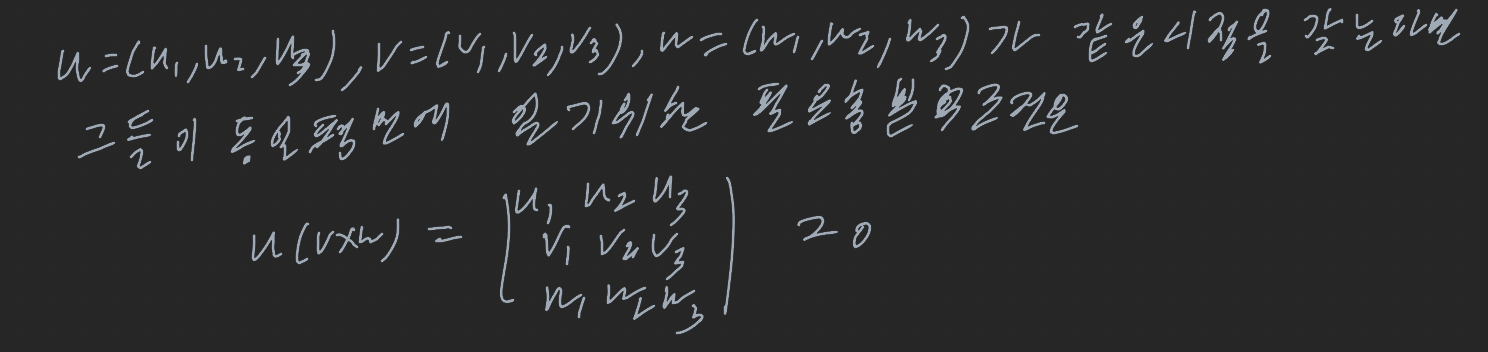 u=(u₁,u₂,u₃), v=(v₁,v₂,v₃), w=(w₁,w₂,w₃)가 같은 시점을 갖는다면
그들이 동일평면에 있기 위한 필요충분조건은
u(v×w) = | u₁ u₂ u₃ | = 0
v₁ v₂ v₃
w₁ w₂ w₃